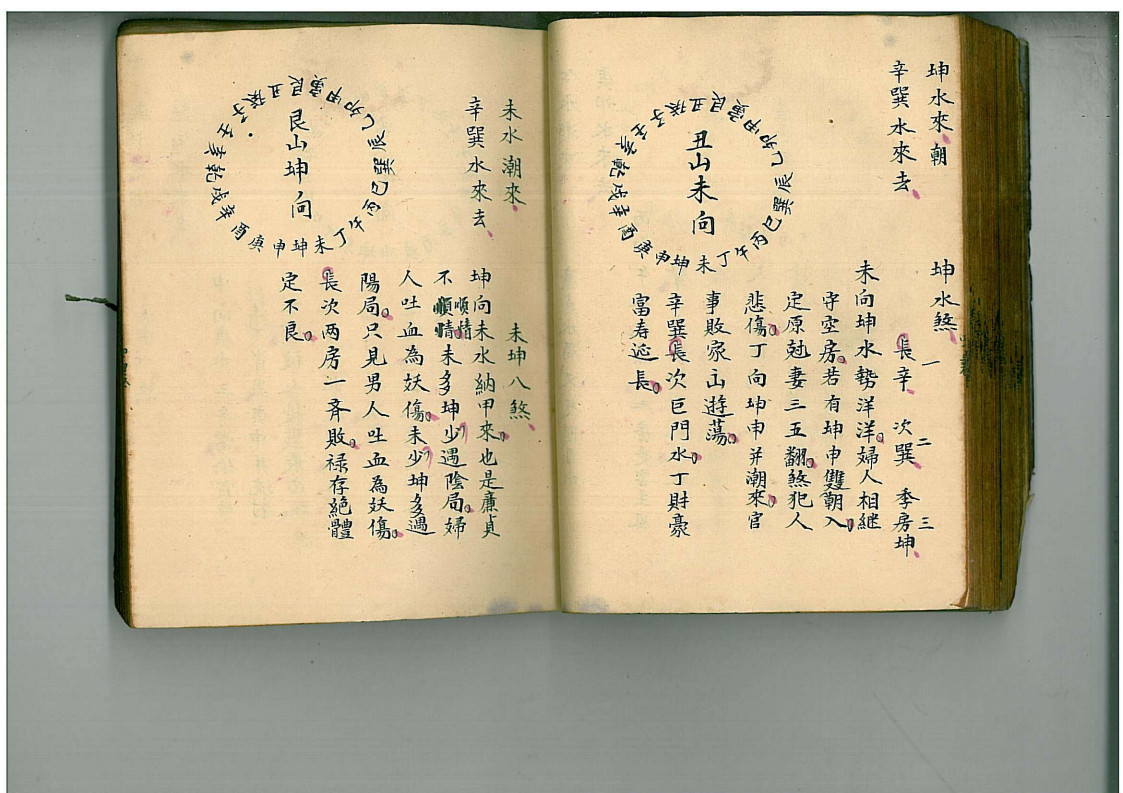 坤水來朝
辛巽水來去
丑山未向
壬子癸丑艮寅甲卯乙辰巽巳丙午丁未坤申庚酉辛戌乾亥
坤水煞
一 二 三
長辛 次巽 季房坤
未向坤水勢洋洋婦人相継
守空房若有坤申雙朝入
定原尅妻三五翻煞犯人
悲傷丁向坤申并潮來官
事敗家山遊蕩
辛巽長次巨門水丁財豪
富寿延長
未水潮來
辛巽水來去
艮山坤向
壬子癸丑艮寅甲卯乙辰巽巳丙午丁未坤申庚酉辛戌乾亥
未坤八煞
坤向未水納甲來也是廉貞
不順情未多坤少遇陰局婦
順情
人吐血為妖傷未少坤多遇
陽局只見男人吐血為妖傷
長次两房一斉敗禄存絕體
定不良